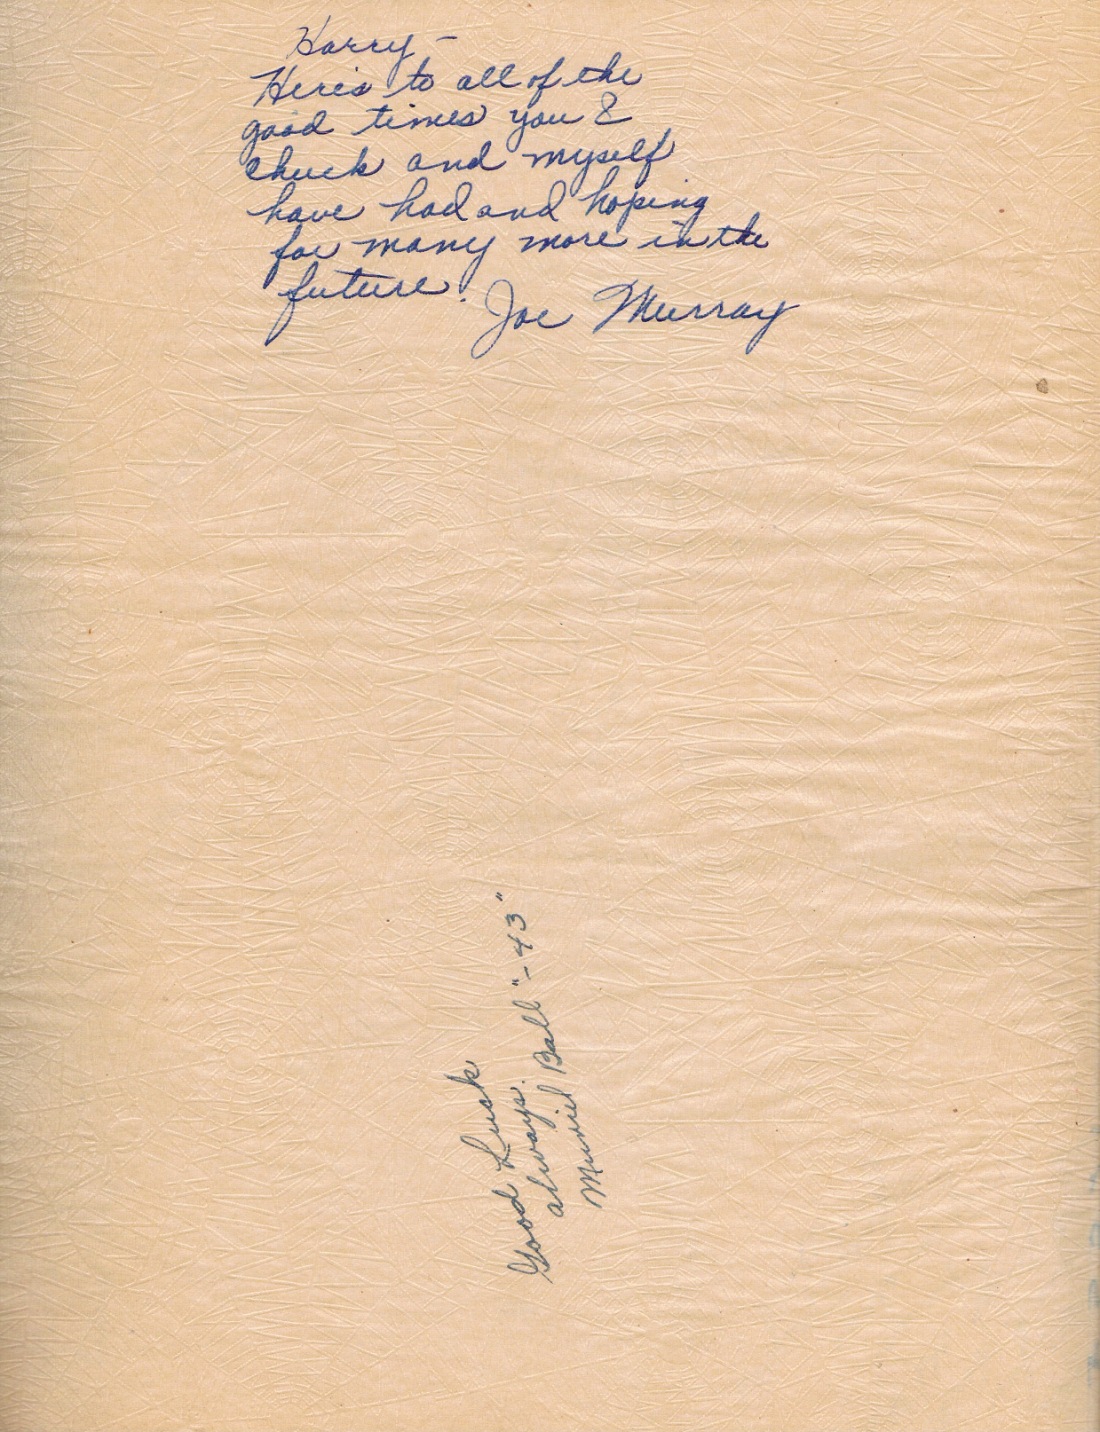 Harry –
Here's to all of the
good times you &
chuck and myself
have had and hoping
for many more in the
future.
Joe Murray
Good Luck
always.
Muriel Ball "-43"